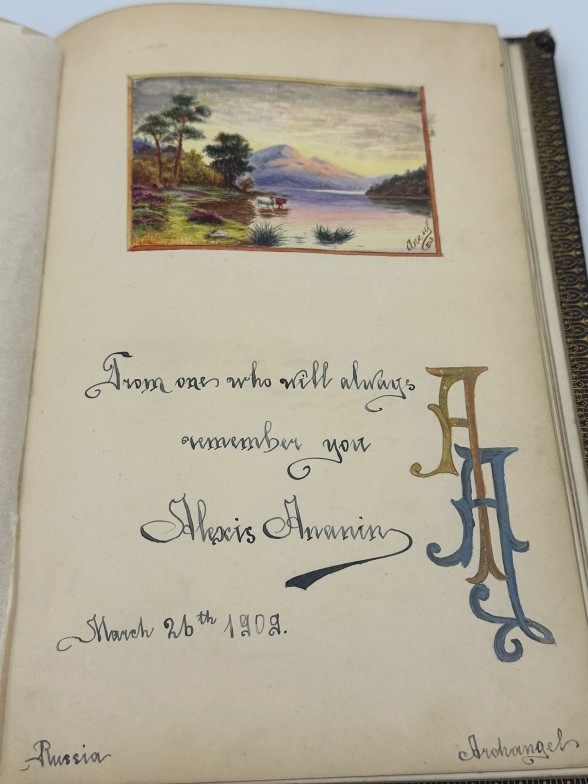 From one who will always
remember you
Alexis Ananin
AA
March 26th 1909.
Russia
Archangel